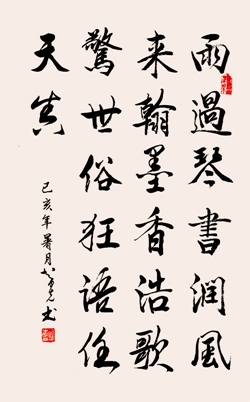 雨過琴書潤風
来翰墨香浩歌
驚世俗狂語任
天真
己亥年暑月书